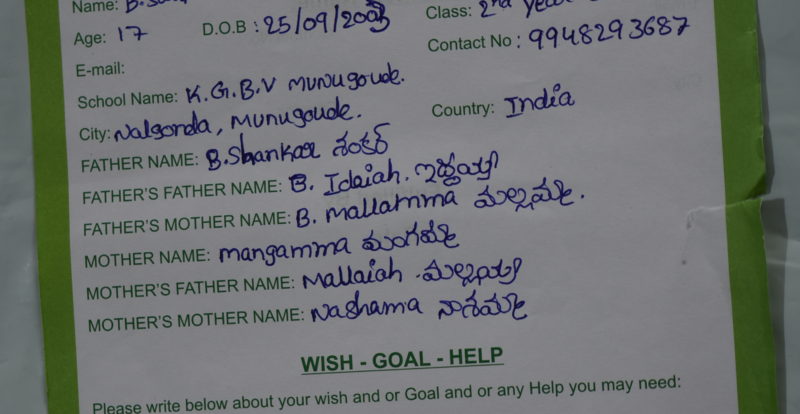 Name: B.
Age: 17 D.O.B : 25/09/2003 Class: 2nd year
E-mail: Contact No : 9948293687
School Name: K.G.B.V Munugoude.
City: Nalgonda, Munugoude. Country: India
FATHER NAME: B.Shankar శంకర్
FATHER'S FATHER NAME: B. Idaiah.
FATHER'S MOTHER NAME: B. Mallamma మల్లమ్మ.
MOTHER NAME: mangamma మంగమ్మ
MOTHER'S FATHER NAME: Mallaiah మల్లయ్య
MOTHER'S MOTHER NAME: Nashama నాశమ్మ
WISH - GOAL - HELP
Please write below about your wish and or Goal and or any Help you may need: